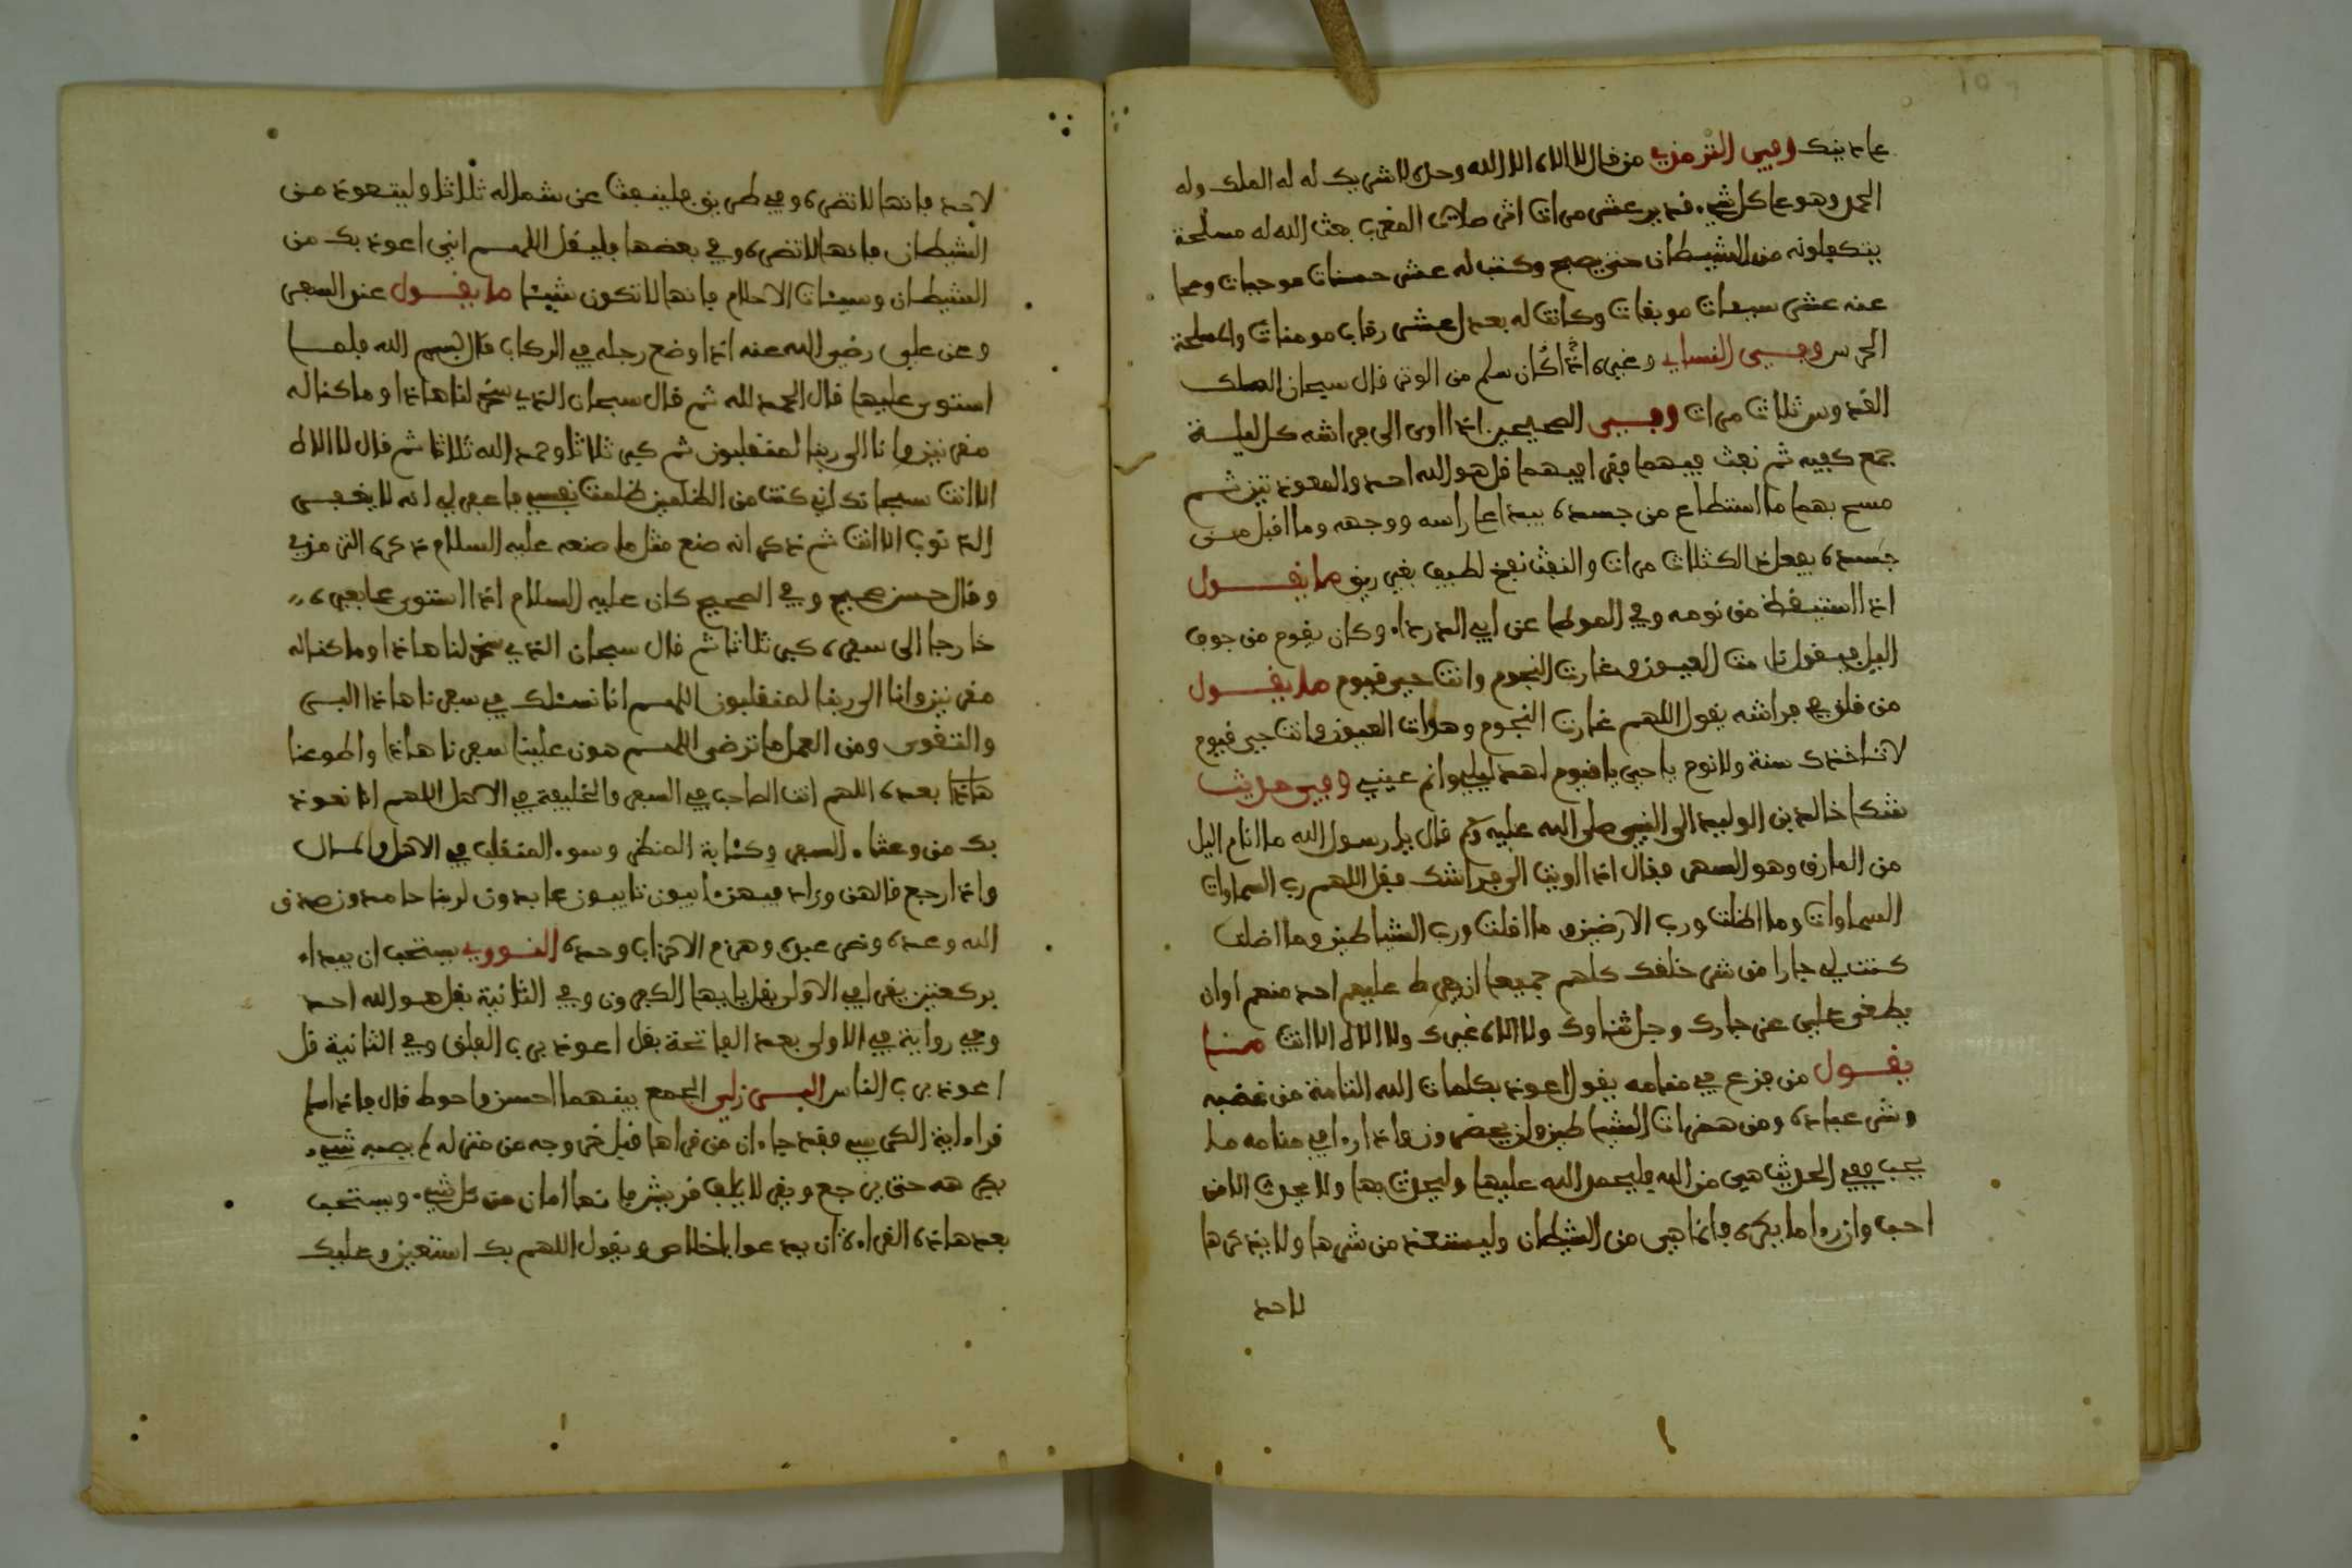 على دينك وفي الترمذي من قال لا الاه الا الله وحده لا شريك له له الملك وله
الحمد وهو على كل شيء قدير عشر مرات اثر صلاة المغرب بعث الله له مسلحة
يتكفلونه من الشيطان حتى يصبح وكتب له عشر حسنات موجبات ومحا
عنه عشر سيئات موبقات وكانت له بعدل عشر رقاب مومنات والمسلحة
الحرس وفي النساءي وغيره اذا كان سلم من الوتر قال سبحان الملك
القدوس ثلاث مرات وفي الصحيحين اذا اوى الى فراشه كل ليلة
جمع كفيه ثم نفث فيهما فقرا فيهما قل هو الله احد والمعوذتين ثم
مسح بهما ما استطاع من جسده يبدا على راسه ووجهه وما اقبل من
جسده يفعل ذالك ثلاث مرات والنفث نفخ لطيف بغير ريق ما يقول
اذا استيقظ من نومه وفي الموطا عن ابي الدرداء وكان يقوم من جوف
اليل فيقول نامت العيون وغارت النجوم وانت حي قيوم ما يقول
من قلق في فراشه يقول اللهم غارت النجوم وهدات العيون وانت حي قيوم
لا تاخذك سنة ولا نوم يا حي يا قيوم اهد ليلي وانم عيني وفي حديث
شكا خالد بن الوليد الى النبي صلى الله عليه وسلم قال يا رسول الله ما انام اليل
من الارق وهو السهر فقال اذا اويت الى فراشك فقل اللهم رب السماوات
السماوات وما اظلت ورب الارضين وما اقلت ورب الشياطين وما اضلت
كنت لي جارا من شر خلقك كلهم جميعا ان يفرط عليهم احد منهم او ان
يطغى علي عز جارك وجل ثناوك ولا الاه غيرك ولا الاه الا انت ما
يقول من فزع في منامه يقول اعوذ بكلمات الله التامة من غضبه
وشر عباده ومن همزات الشياطين وان يحضرون واذا راء في منامه ما
يحب ففي الحديث هي من الله فليحمد الله عليها وليحدث بها ولا يحدث الا من
احب وان را ما يكره فانما هي من الشيطان وليستعذ من شرها ولا يذكرها
لاحد
لاحد فانها لا تضره وفي طريق فلينفث عن شماله ثلاثا وليتعوذ من
الشيطان فانها لا تضره وفي بعضها فليقل اللهم اني اعوذ بك من
الشيطان وسيئات الاحلام فانها لا تكون شيئا ما يقول عند السفر
وعن علي رضي الله عنه اذا وضع رجله في الركاب قال بسم الله فلما
استوى عليها قال الحمد لله ثم قال سبحان الذي سخر لنا هاذا وما كنا له
مقرنين وانا الى ربنا لمنقلبون ثم كبر ثلاثا وحمد الله ثلاثا ثم قال لا الاه
الا انت سبحانك اني كنت من الظلمين ظلمت نفسي فاغفر لي انه لا يغفر
الذنوب الا انت ثم ذكر انه صنع مثل ما صنعه عليه السلام ذكره الترمذي
وقال حسن صحيح وفي الصحيح كان عليه السلام اذا استوى على بعيره
خارجا الى سفره كبر ثلاثا ثم قال سبحان الذي سخر لنا هاذا وما كنا له
مقرنين وانا الى ربنا لمنقلبون اللهم انا نسئلك في سفرنا هاذا البر
والتقوى ومن العمل ما ترضى اللهم هون علينا سفرنا هاذا واطو عنا
هاذا بعده اللهم انت الصاحب في السفر والخليفة في الاهل اللهم انا نعوذ
بك من وعثاء السفر وكئابة المنظر وسوء المنقلب في الاهل والمال
واذا رجع قالهن وزاد فيهن ءايبون تايبون عابدون لربنا حامدون صدق
الله وعده ونصر عبده وهزم الاحزاب وحده النووي يستحب ان يبداء
بركعتين يقرا في الاولى بقل يا يها الكفرون وفي الثانية بقل هو الله احد
وفي رواية في الاولى بعد الفاتحة بقل اعوذ برب الفلق وفي الثانية قل
اعوذ برب الناس البرزلي الجمع بينهما احسن واحوط قال فاذا سلم
قراء اية الكرسي فقد جاء ان من قراها قبل خروجه من منزله لم يصبه شيء
يكرهه حتى يرجع ويقرا لايلف قريش فانها امان من كل شيء ويستحب
بعد هاذه القراءة ان يدعوا باخلاص ويقول اللهم بك استعين وعليك